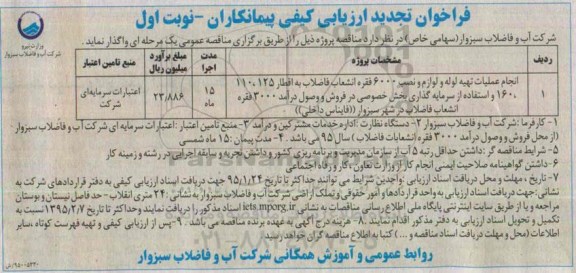 فراخوان تجدید ارزیابی کیفی پیمانکاران - نوبت اول
وزارت نیرو
شرکت آب و فاضلاب سبزوار
شرکت آب و فاضلاب سبزوار (سهامی خاص) در نظر دارد مناقصه پروژه ذیل را از طریق برگزاری مناقصه عمومی یک مرحله ای واگذار نماید.
ردیف مشخصات پروژه مدت اجرا مبلغ برآورد میلیون ریال منبع تامین اعتبار
۱ انجام عملیات تهیه لوله و لوازم و نصب ۶۰۰۰ فقره انشعاب فاضلاب به اقطار ۱۲۵، ۱۱۰
۱۶۰ و استفاده از سرمایه گذاری بخش خصوصی در فروش و وصول درآمد ۳۰۰۰ فقره
انشعاب فاضلاب در شهر سبزوار (فاینانس داخلی)
۱۵ ماه ۲۳/۸۸۶ اعتبارات سرمایه‌ای شرکت
۱- کارفرما: شرکت آب و فاضلاب سبزوار ۲- دستگاه نظارت: اداره خدمات مشترکین و درآمد ۳- منبع تامین اعتبار: اعتبارات سرمایه ای شرکت آب و فاضلاب سبزوار
(از محل فروش و وصول درآمد ۳۰۰۰ فقره انشعابات فاضلاب) سال ۹۵ می باشد. ۴- مدت پیمان: ۱۵ ماه شمسی
۵- شرایط مناقصه گر: داشتن حداقل رتبه ۵ آب از سازمان مدیریت و برنامه ریزی کشور و داشتن تجربه و سابقه اجرایی در رشته و زمینه کار
۶- داشتن گواهینامه صلاحیت ایمنی انجام کار از وزارت تعاون، کار و رفاه اجتماعی
۷- تاریخ، مهلت و محل دریافت اسناد ارزیابی: واجدین شرایط می توانند حداکثر تا تاریخ ۹۵/۱/۲۴ جهت دریافت اسناد ارزیابی کیفی به دفتر قراردادهای شرکت به
نشانی: جهت دریافت اسناد ارزیابی به واحد قراردادها و امور حقوقی و تملک اراضی شرکت آب و فاضلاب سبزوار به نشانی: ۲۴ متری انقلاب - حد فاصل نیستان و بوستان
مراجعه و یا از طریق سایت اینترنتی پایگاه ملی اطلاع رسانی مناقصات به نشانی iets.mporg.ir اسناد مذکور را دریافت نمایند و حداکثر تا تاریخ ۱۳۹۵/۲/۷ نسبت به
تکمیل و تحویل اسناد ارزیابی به دفتر مذکور اقدام نمایند. ۸- هزینه درج آگهی به عهده برنده مناقصه می باشد. ۹- پس از ارزیابی کیفی و تهیه فهرست کوتاه، سایر
اطلاعات (محل و مهلت دریافت اسناد مناقصه و ...) کتبا به اطلاع مناقصه گران خواهد رسید.
روابط عمومی و آموزش همگانی شرکت آب و فاضلاب سبزوار